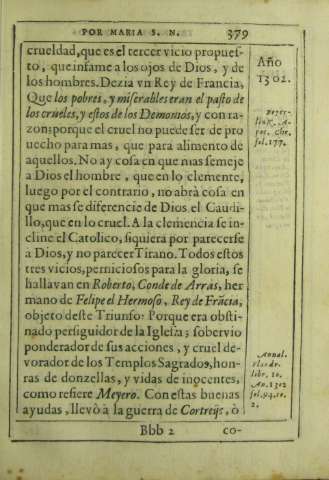 POR MARIA S. N. 379
crueldad, que es el tercer vicio propues-
to, que infame a los ojos de Dios, y de
los hombres. Dezia vn Rey de Francia,
Que los pobres, y miserables eran el pasto de
los crueles, y estos de los Demonios, y con ra-
zon: porque el cruel no puede ser de pro
uecho para mas, que para alimento de
aquellos. No ay cosa en que mas semeje
a Dios el hombre, que en lo clemente,
luego por el contrario, no abrà cosa en
que mas se diferencie de Dios el Caudi-
llo, que en lo cruel. A la clemencia se in-
cline el Catolico, siquiera por parecerse
a Dios, y no parecer Tirano. Todos estos
tres vicios, perniciosos para la gloria, se
hallavan en Roberto, Conde de Arràs, her
mano de Felipe el Hermoso, Rey de Frãcia,
objeto deste Triunfo: Porque era obsti-
nado persiguidor de la Iglesia; sobervio
ponderador de sus acciones, y cruel de-
vorador de los Templos Sagrados, hon-
ras de donzellas, y vidas de inocentes,
como refiere Meyero. Con estas buenas
ayudas, llevò a la guerra de Cortreijs, ò
Bbb 2 co-
Año
1302.
fol. 177.
Annal.
Flandr.
libr. 10.
An. 1302
fol. 94. 10.
2.